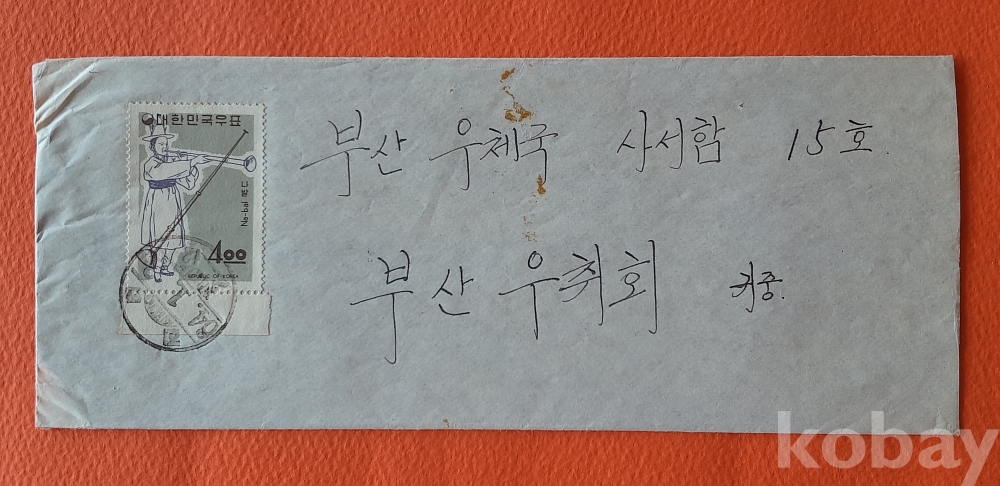 대한민국우표
나발 Na-bal
4.00
REPUBLIC OF KOREA
부산 우체국 사서함 15호.
부산 우취회 귀중.
kobay